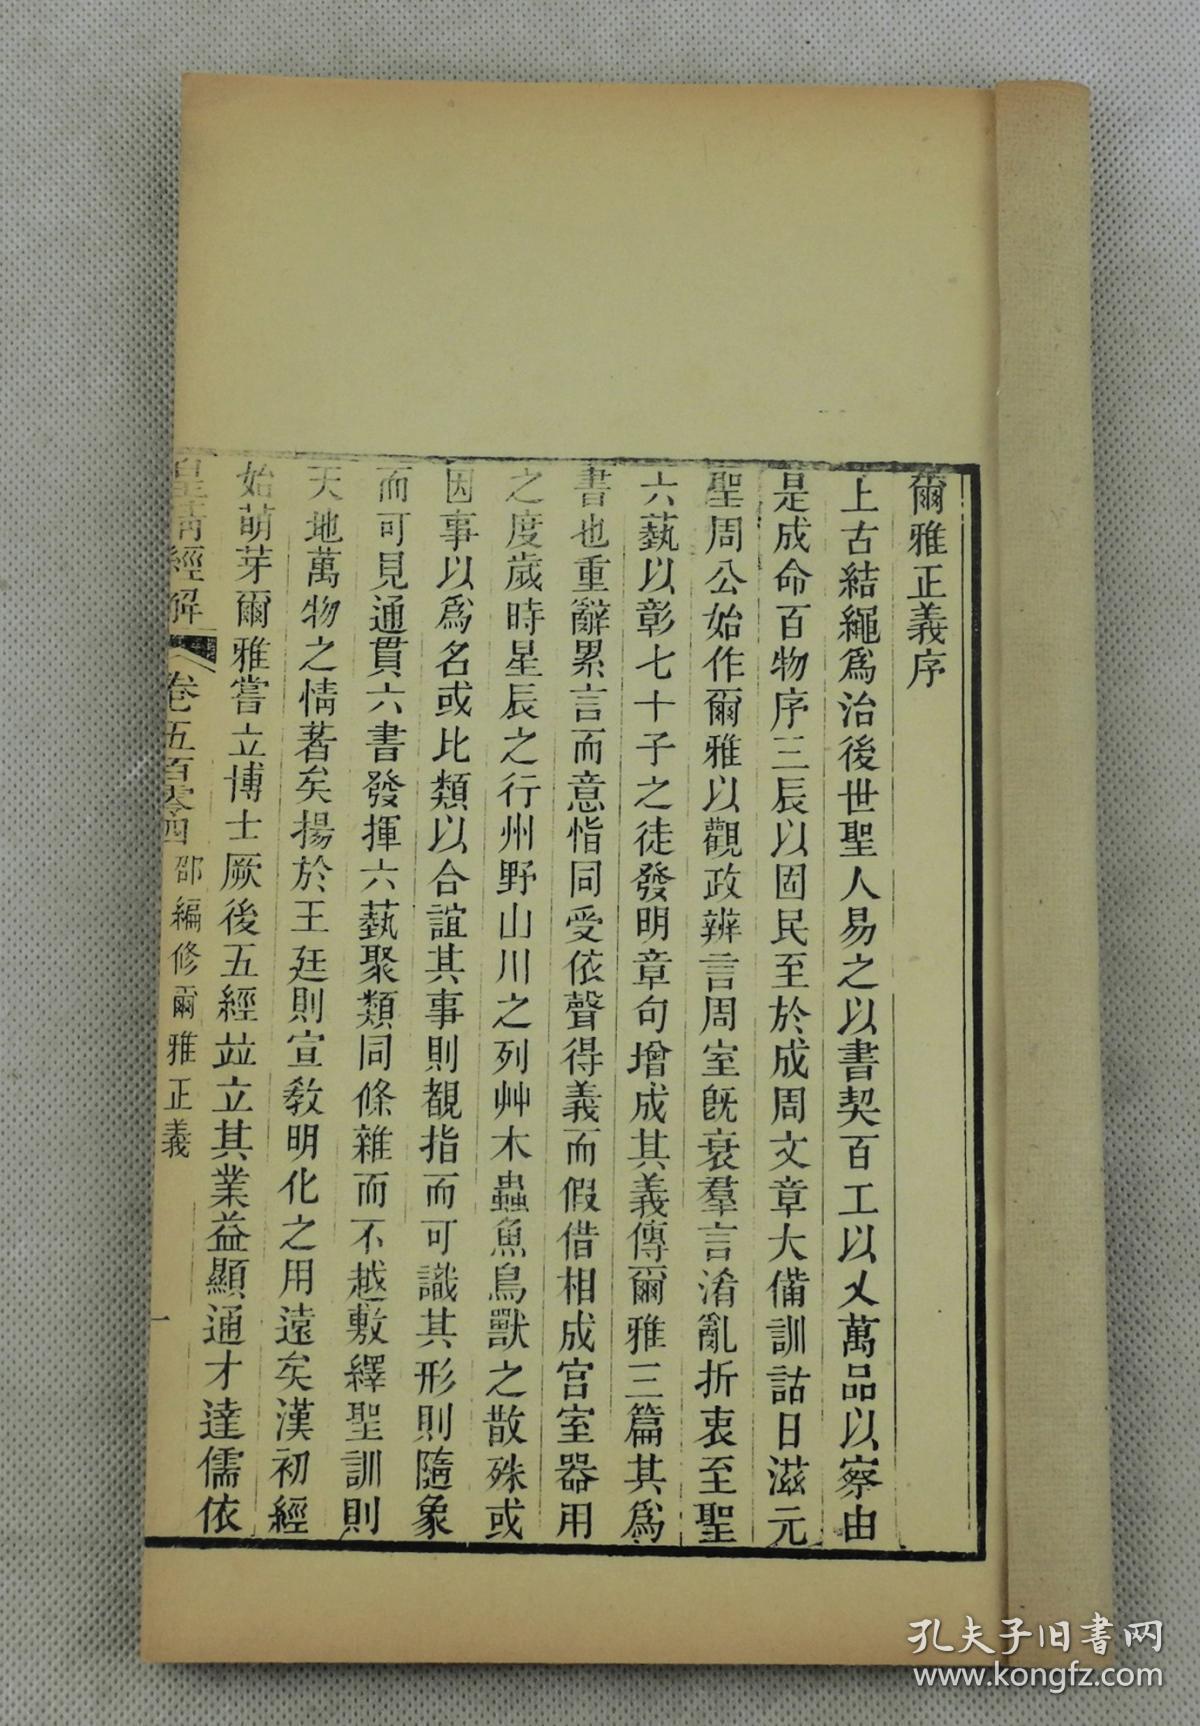 爾雅正義序
上古結繩爲治後世聖人易之以書契百工以乂萬品以察由
是成命百物序三辰以固民至於成周文章大備訓詁日滋元
聖周公始作爾雅以觀政辨言周室旣衰羣言淆亂折衷至聖
六藝以彰七十子之徒發明章句增成其義傳爾雅三篇其爲
書也重辭累言而意恉同受依聲得義而假借相成宫室器用
之度歲時星辰之行州野山川之列艸木蟲魚鳥獸之散殊或
因事以爲名或比類以合誼其事則覩指而可識其形則隨象
而可見通貫六書發揮六藝聚類同條雜而不越敷繹聖訓則
天地萬物之情著矣揚於王廷則宣教明化之用遠矣漢初經
始萌芽爾雅嘗立博士厥後五經竝立其業益顯通才達儒依
皇清經解 卷五百零四 邵編修爾雅正義 一
孔夫子旧書网
www.kongfz.com